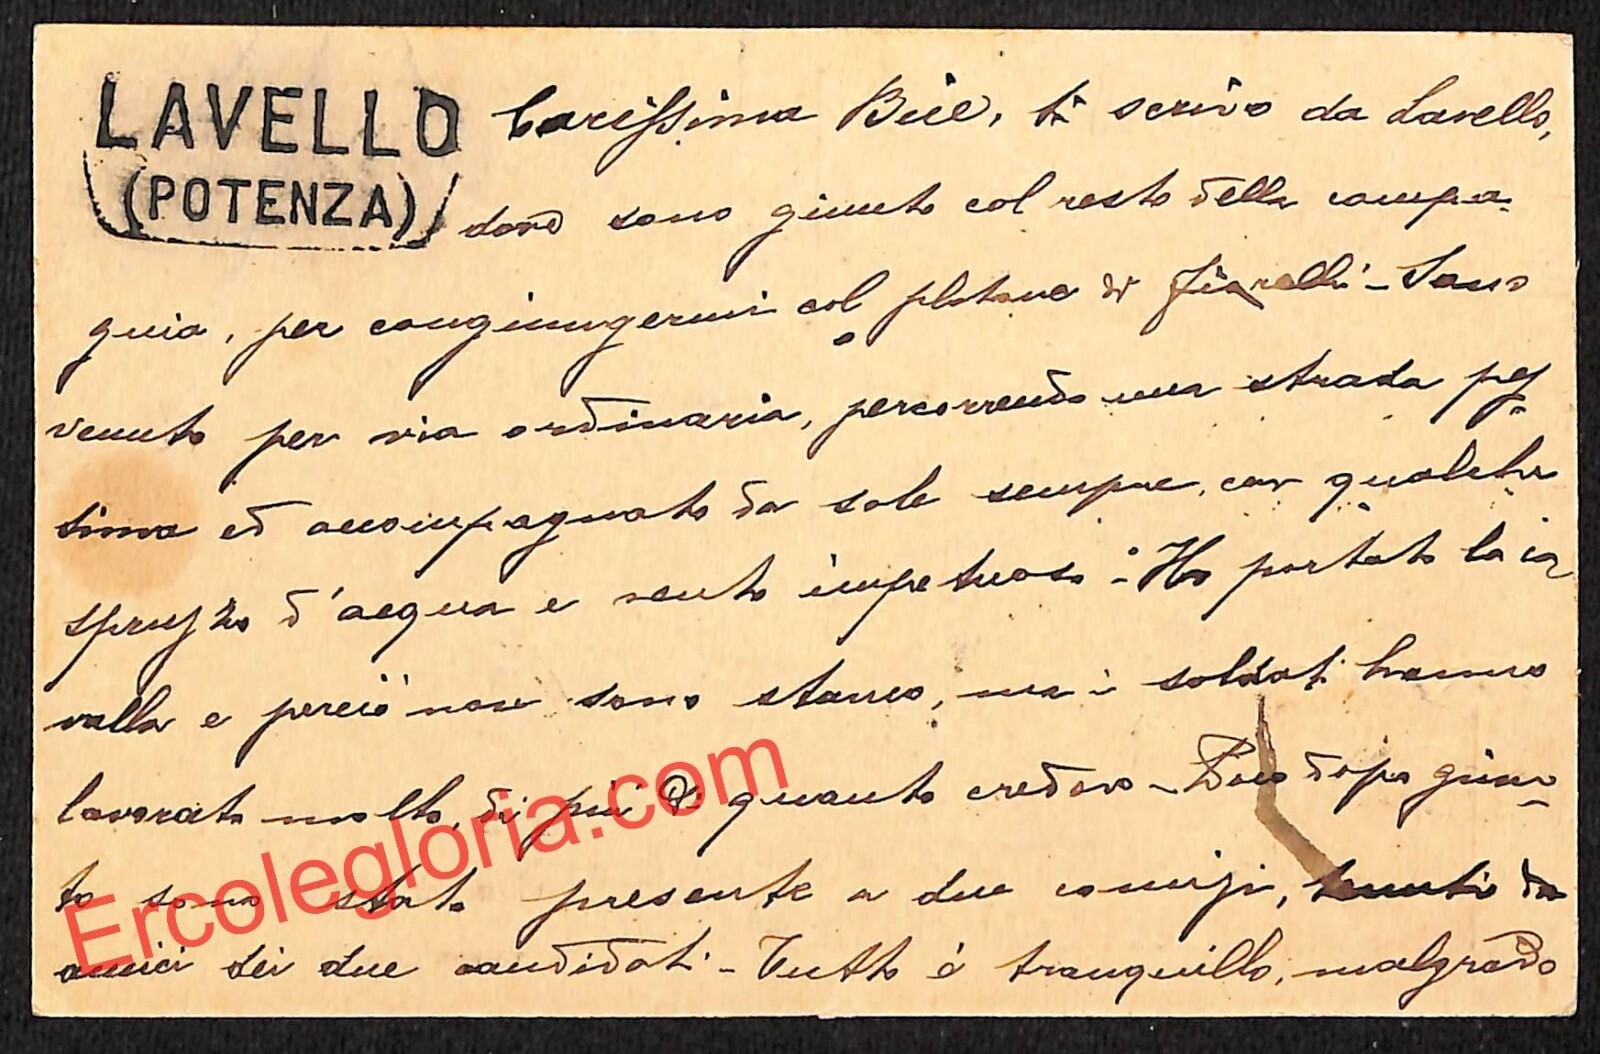 LAVELLO
(POTENZA)
Carissima Bice, ti scrivo da Lavello,
dove sono giunto col resto della compa-
gnia, per congiungermi col plotone di Fiorelli - Sono
venuto per via ordinaria, percorrendo una strada pes-
sima ed accompagnato da sole sempre, con qualche
spruzzo d'acqua e vento impetuoso - Ho portato la ca
valla e perciò non sono stanco, ma i soldati hanno
lavorato molto, di più di quanto credevo - Poco dopo giun-
to sono stato presente a due comizi, tenuti da
amici dei due candidati - Tutto è tranquillo, malgrado
Ercolegloria.com